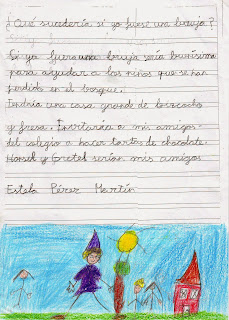 ¿Qué sucedería si yo fuese una bruja?
Si yo fuera una bruja sería buenísima
para ayudar a los niños que se han
perdido en el bosque.
Tendría una casa grande de bizcocho
y fresa. Invitaría a mis amigos
del colegio a hacer tartas de chocolate.
Hansel y Gretel serían mis amigos
Estela Pérez Martín